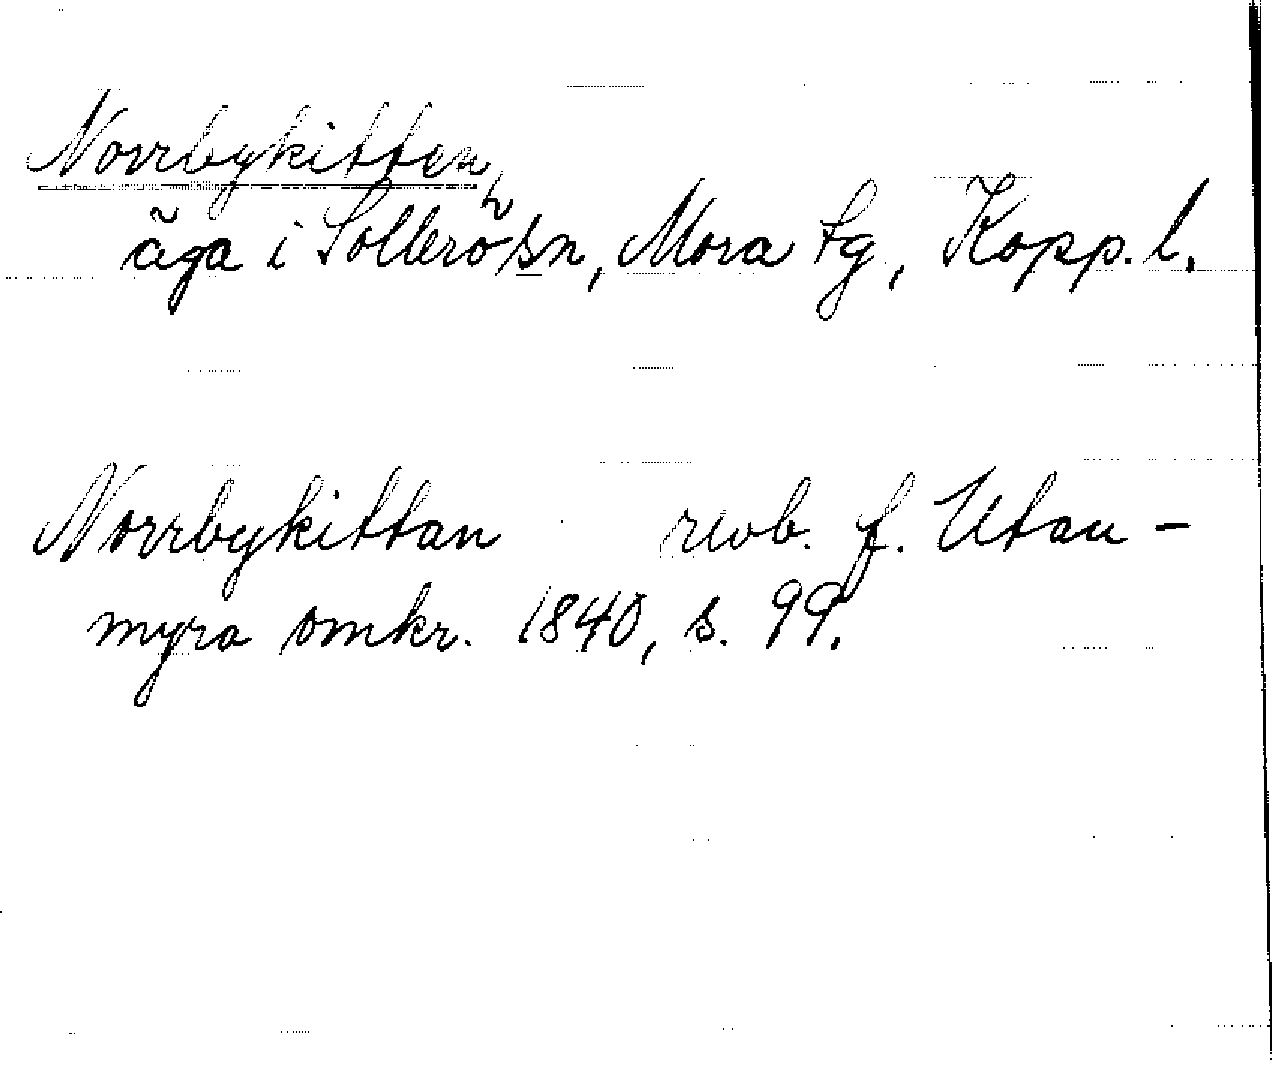 Norrbykitten,
äga i Sollerö n sn, Mora tg, Kopp. l.
Norrbykittan rwb. f. Utan-
myra omkr. 1840, s. 99.